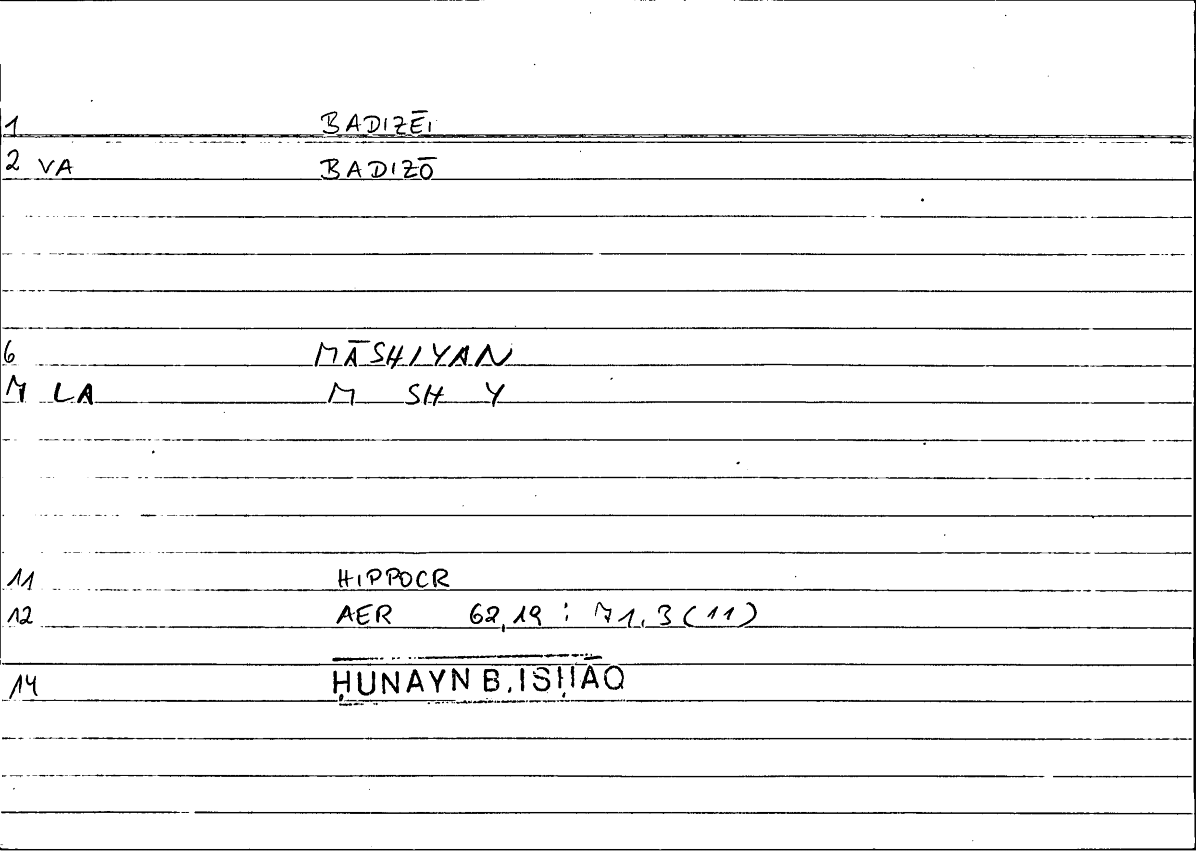 1 BADIZĒI
2 VA BADIZŌ
6 MĀSHIYAN
7 LA M SH Y
11 HIPPOCR
12 AER 62,19 : 71,3(11)
14 ḤUNAYN B. ISḤĀQ